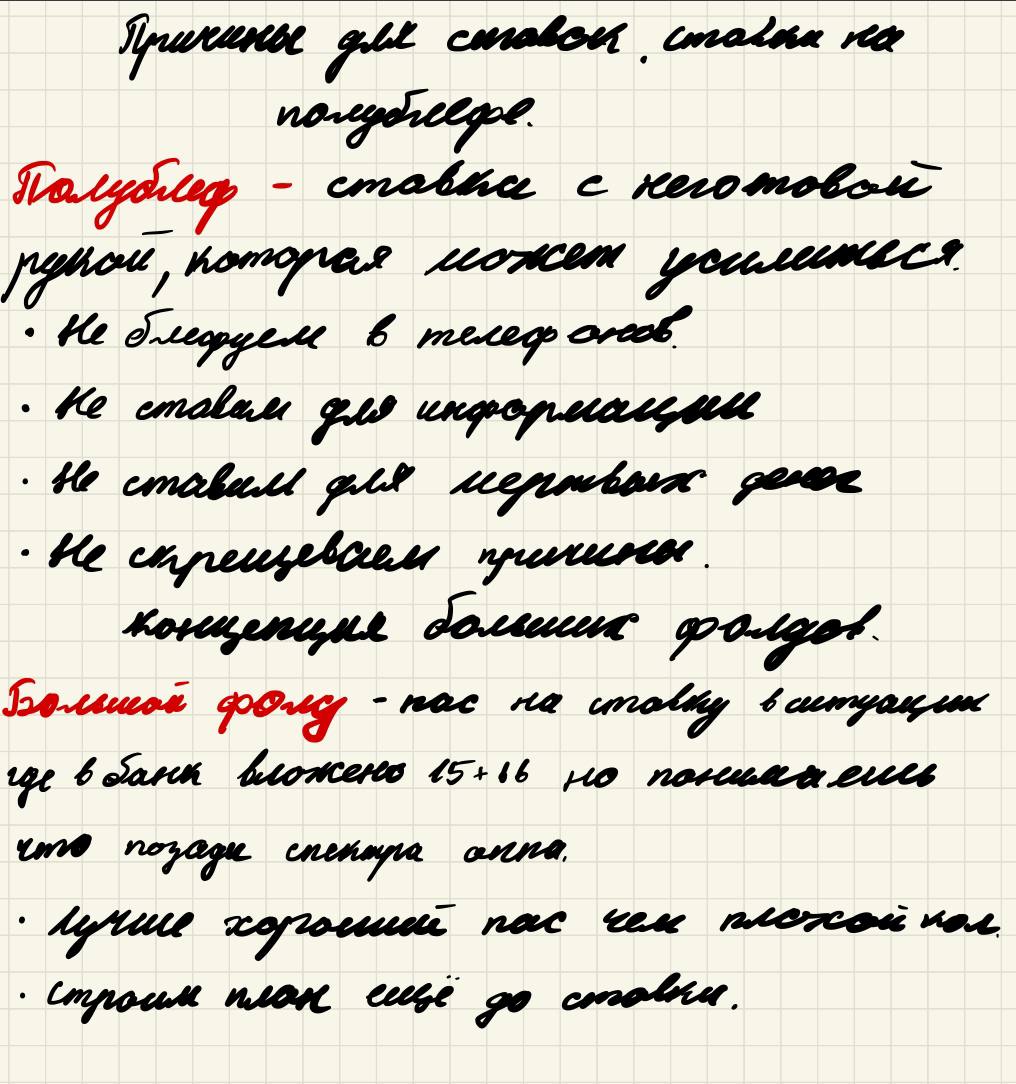 Причины для ставок. ставки на
полублефе.
Полублеф - ставка с неготовой
рукой, которая может усилиться.
· Не блефуем в телефонов.
· Не ставим для информации
· Не ставим для мертвых денег
· Не скрещеваем причины.
концепция больших фолдов.
Большой фолд - пас на ставку в ситуации
где в банк вложено 15+ ББ но понимаешь
что позади спектра оппа.
· Лучше хороший пас чем плохой кол.
· Строим план ещё до ставки.